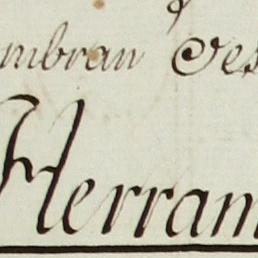 mbran Des
Herram